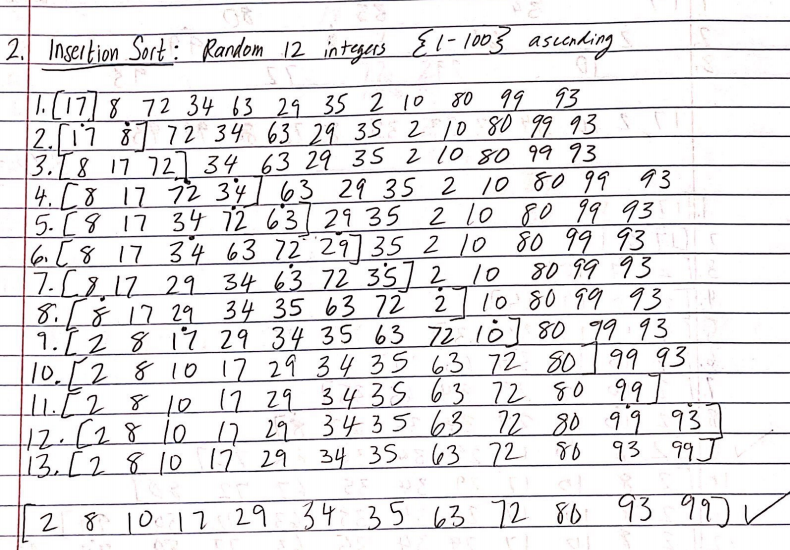 2. Insertion Sort: Random 12 integers {1-100} ascending
1. [17] 8 72 34 63 29 35 2 10 80 99 93
2. [17 8] 72 34 63 29 35 2 10 80 99 93
3. [8 17 72] 34 63 29 35 2 10 80 99 93
4. [8 17 72 34] 63 29 35 2 10 80 99 93
5. [8 17 34 72 63] 29 35 2 10 80 99 93
6. [8 17 34 63 72 29] 35 2 10 80 99 93
7. [8 17 29 34 63 72 35] 2 10 80 99 93
8. [8 17 29 34 35 63 72 2] 10 80 99 93
9. [2 8 17 29 34 35 63 72 10] 80 99 93
10. [2 8 10 17 29 34 35 63 72 80] 99 93
11. [2 8 10 17 29 34 35 63 72 80 99]
12. [2 8 10 17 29 34 35 63 72 80 99 93]
13. [2 8 10 17 29 34 35 63 72 80 93 99]
[2 8 10 17 29 34 35 63 72 80 93 99] ✓